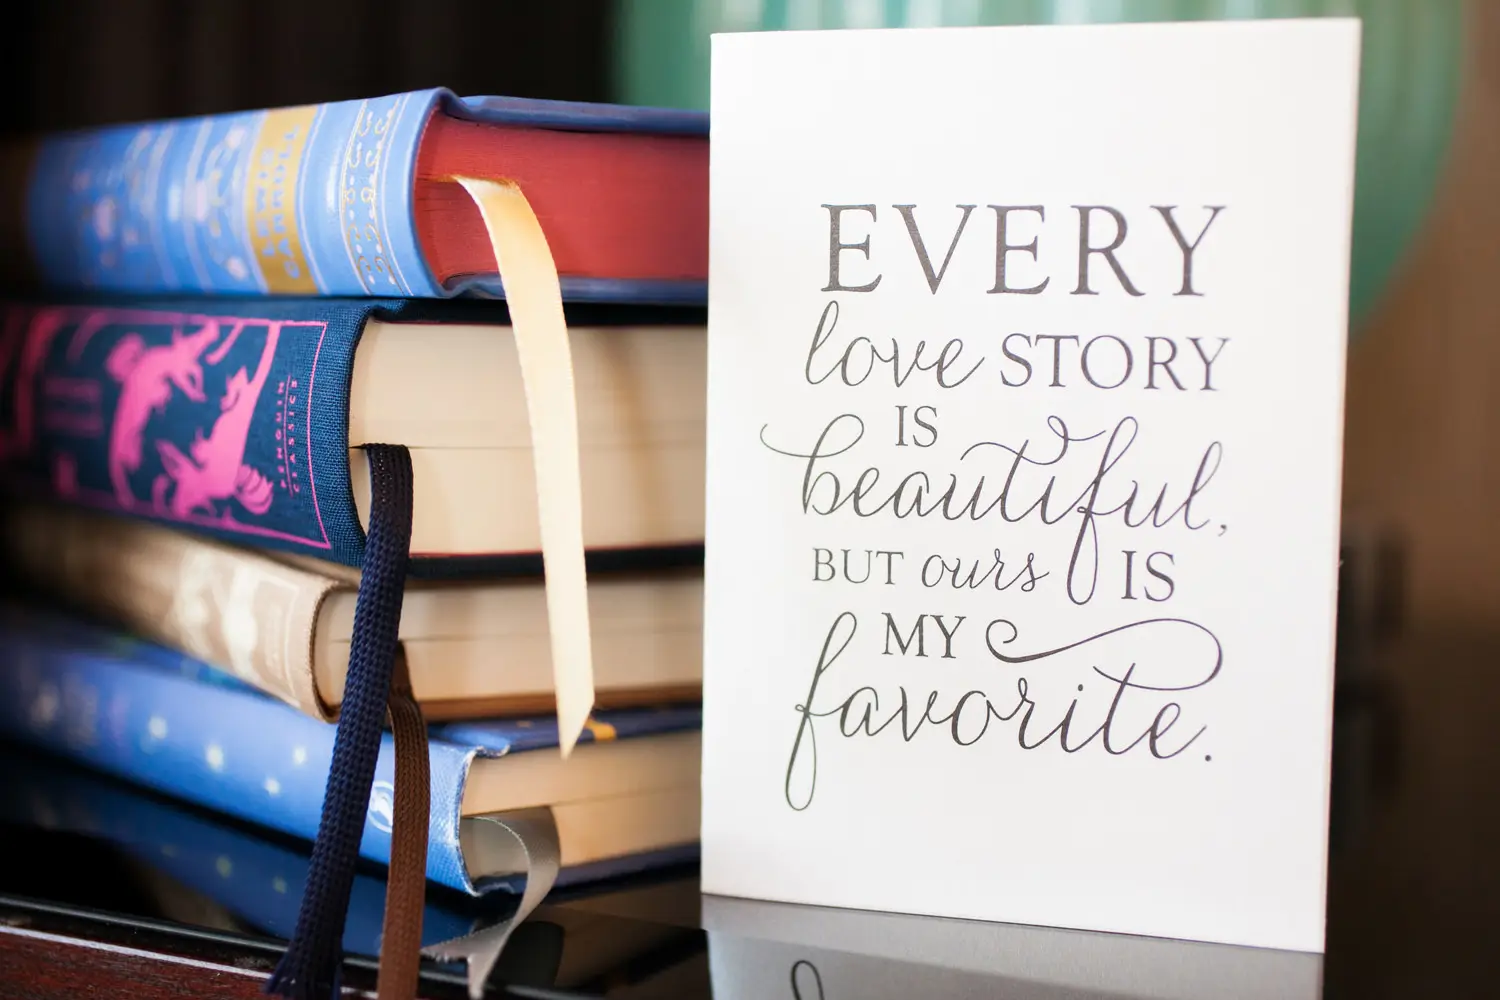 LEWIS
CARROLL
PENGUIN
CLASSICS
EVERY
love STORY
IS
beautiful,
BUT ours IS
MY
favorite.